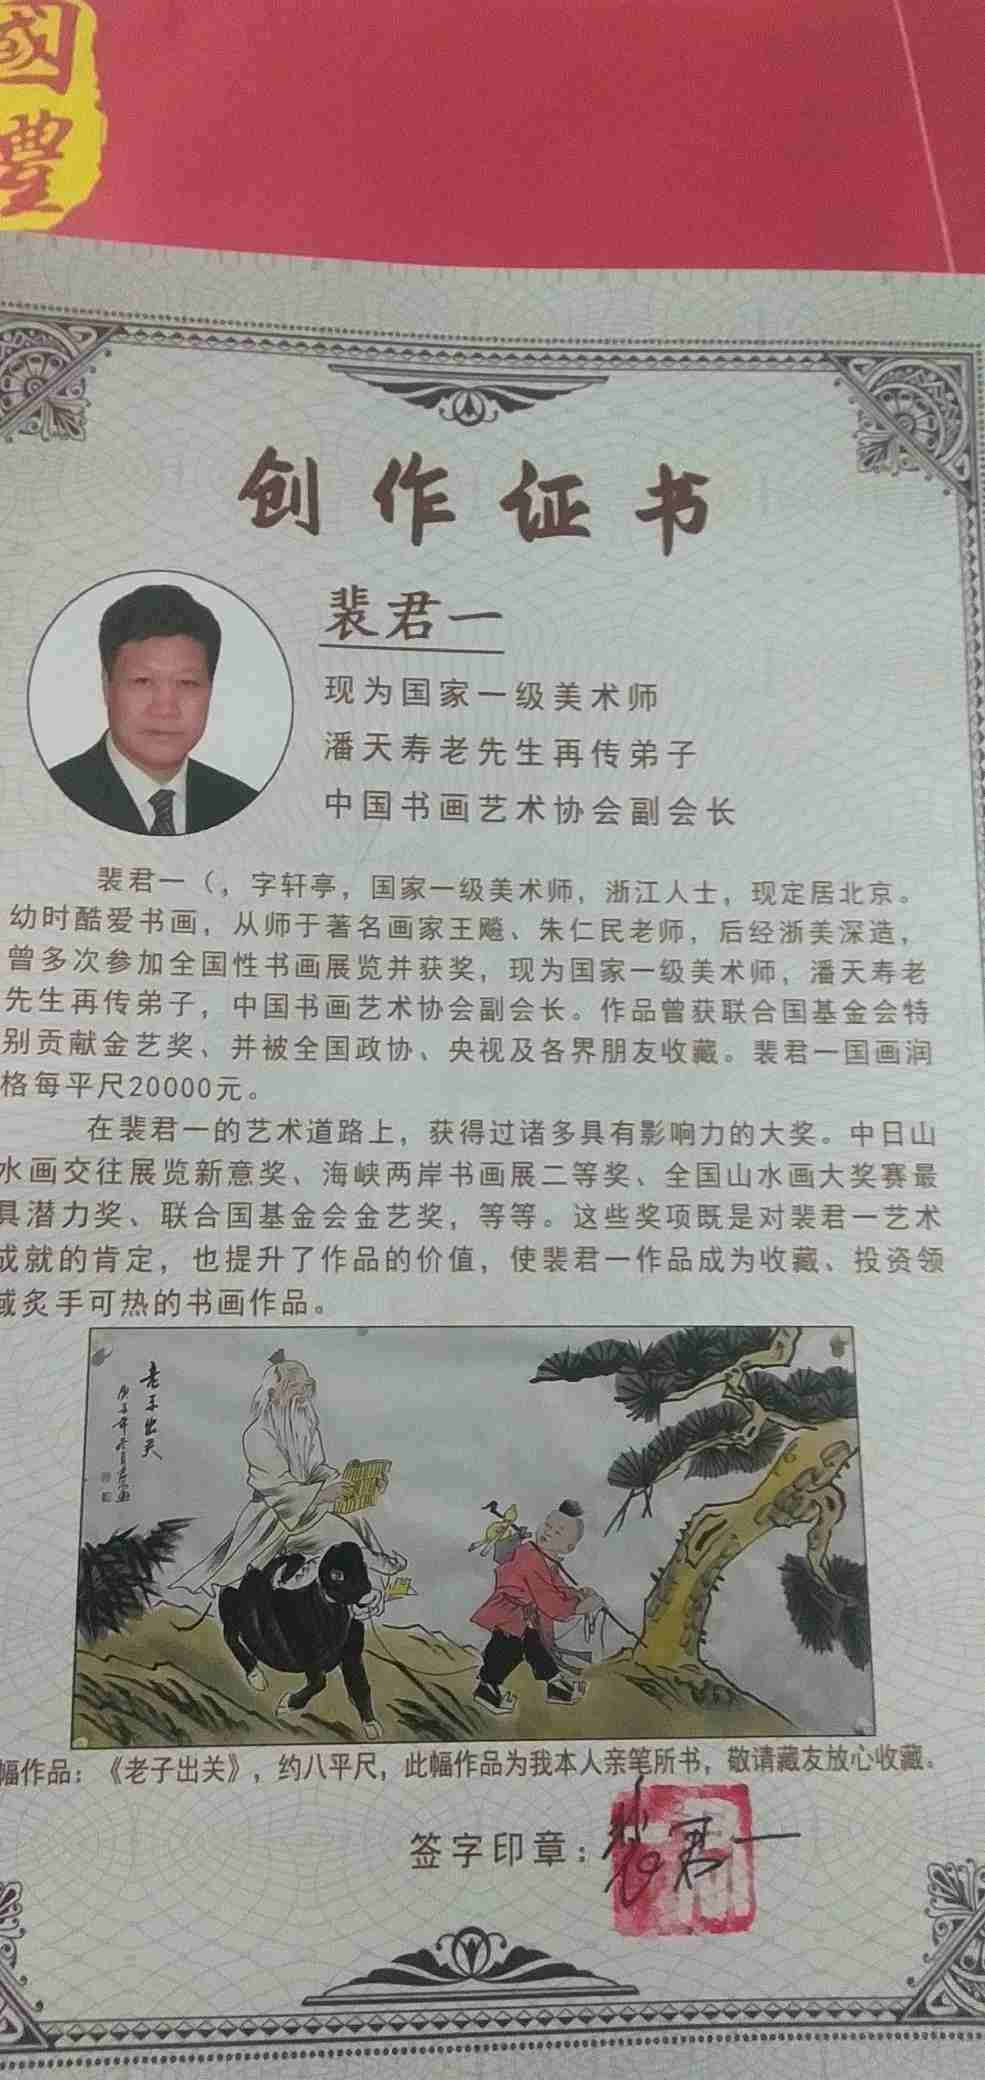 國
禮
创作证书
裴君一
现为国家一级美术师
潘天寿老先生再传弟子
中国书画艺术协会副会长
裴君一（，字轩亭，国家一级美术师，浙江人士，现定居北京。
幼时酷爱书画，从师于著名画家王飚、朱仁民老师，后经浙美深造，
曾多次参加全国性书画展览并获奖，现为国家一级美术师，潘天寿老
先生再传弟子，中国书画艺术协会副会长。作品曾获联合国基金会特
别贡献金艺奖、并被全国政协、央视及各界朋友收藏。裴君一国画润
格每平尺20000元。
在裴君一的艺术道路上，获得过诸多具有影响力的大奖。中日山
水画交往展览新意奖、海峡两岸书画展二等奖、全国山水画大奖赛最
具潜力奖、联合国基金会金艺奖，等等。这些奖项既是对裴君一艺术
成就的肯定，也提升了作品的价值，使裴君一作品成为收藏、投资领
域炙手可热的书画作品。
老子出关
幅作品：《老子出关》，约八平尺，此幅作品为我本人亲笔所书，敬请藏友放心收藏。
签字印章：裴君一